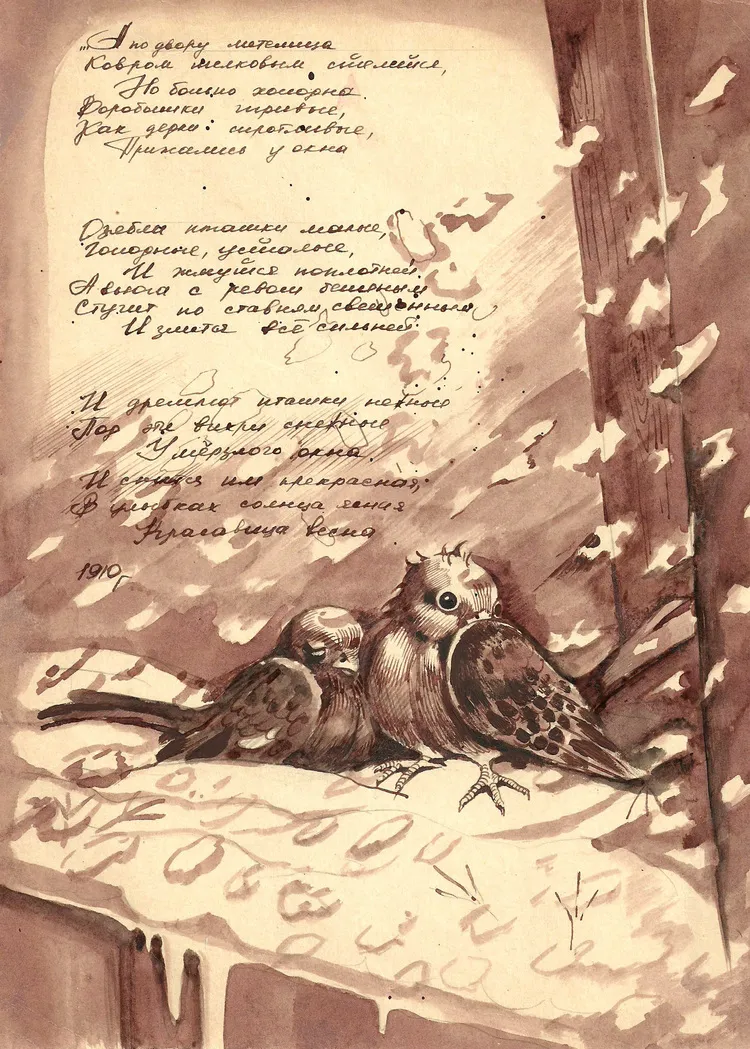 „А по двору метелица
Ковром шелковым стелится,
Но больно холодна.
Воробышки игривые,
Как детки сиротливые,
Прижались у окна
Озябли пташки малые,
Голодные, усталые,
И жмутся поплотней.
А вьюга с ревом бешеным
Стучит по ставням свешенным
И злится всё сильней.
И дремлют пташки нежные
Под эти вихри снежные
У мёрзлого окна.
И снится им прекрасная,
В улыбках солнца ясная
Красавица весна
1910г